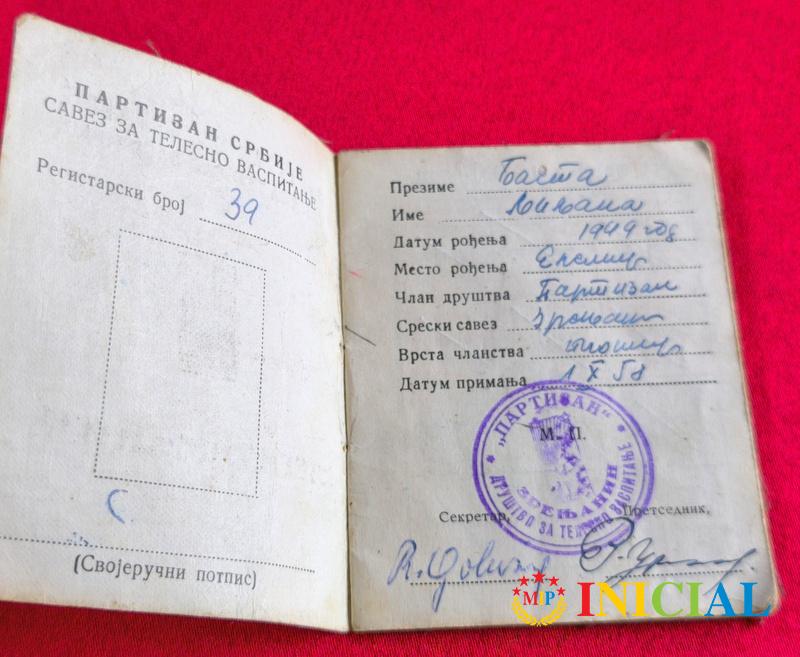 ПАРТИЗАН СРБИЈЕ
САВЕЗ ЗА ТЕЛЕСНО ВАСПИТАЊЕ
Регистарски број 39
(Својеручни потпис)
Презиме Баста
Име Љиљана
Датум рођења 1949 год
Место рођења
Члан друштва Партизан
Срески савез Зрењанин
Врста чланства
Датум примања 1 X 58
М. П.
„ПАРТИЗАН“
ЗРЕЊАНИН
ДРУШТВО ЗА ТЕЛЕСНО ВАСПИТАЊЕ
Секретар, Претседник,
MP INICIAL